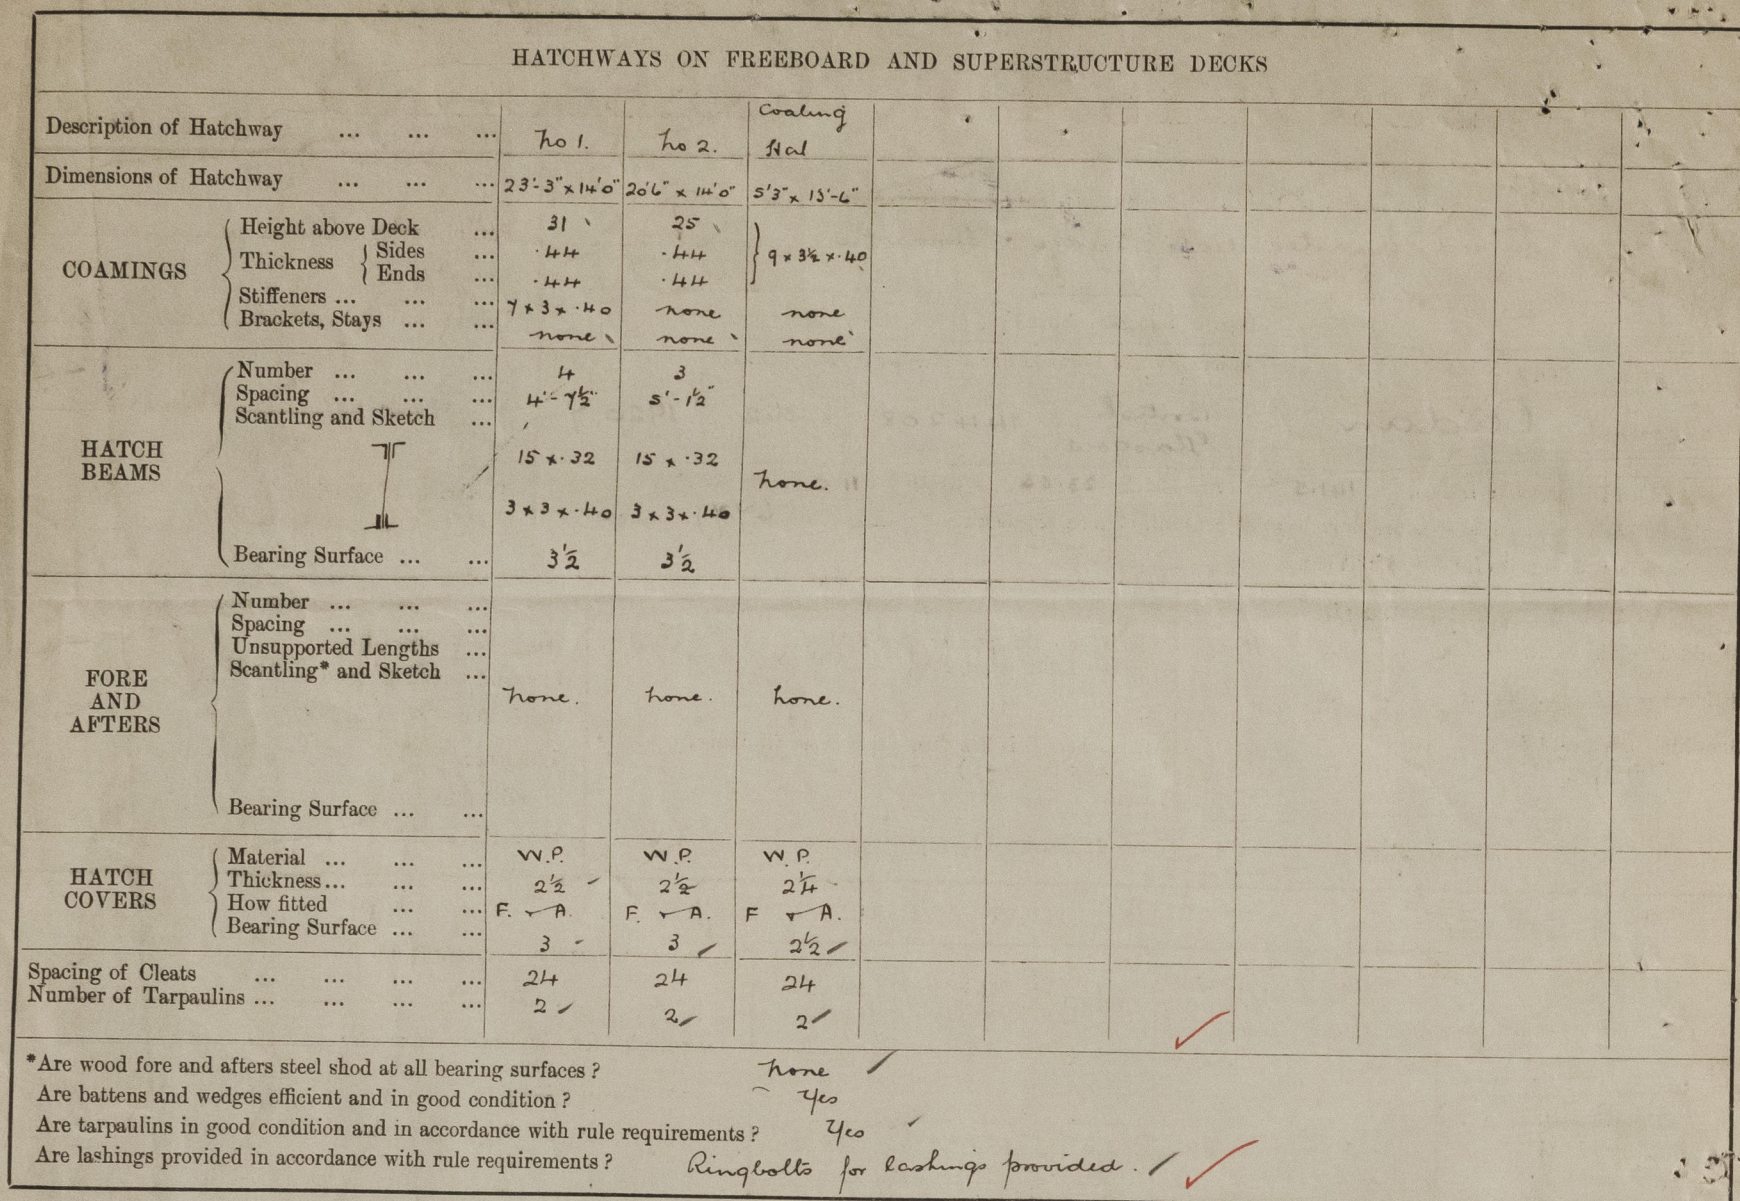 HATCHWAYS ON FREEBOARD AND SUPERSTRUCTURE DECKS
Description of Hatchway ... ... ... No 1. No 2. Coaling Hat
Dimensions of Hatchway ... ... ... 23'-3" x 14'0" 20'6" x 14'0" 5'3" x 13'-6"
COAMINGS
Height above Deck ... 31 25
Thickness { Sides ... .44 .44 } 9 x 3½ x .40
Ends ... .44 .44
Stiffeners ... ... ... 7 x 3 x .40 none none
Brackets, Stays ... ... none none none
HATCH BEAMS
Number ... ... ... 4 3
Spacing ... ... ... 4'-7½" 5'-1½"
Scantling and Sketch ...
15 x .32 15 x .32
none.
3 x 3 x .40 3 x 3 x .40
Bearing Surface ... ... 3½ 3½
FORE AND AFTERS
Number ... ... ...
Spacing ... ... ...
Unsupported Lengths ...
Scantling* and Sketch ...
none. none. none.
Bearing Surface ... ...
HATCH COVERS
Material ... ... ... W.P. W.P. W.P.
Thickness... ... ... 2½ 2½ 2¼
How fitted ... ... F. & A. F. & A. F & A.
Bearing Surface ... ... 3 3 2½
Spacing of Cleats ... ... ... ... 24 24 24
Number of Tarpaulins ... ... ... ... 2 2 2
*Are wood fore and afters steel shod at all bearing surfaces ? none
Are battens and wedges efficient and in good condition ? Yes
Are tarpaulins in good condition and in accordance with rule requirements ? Yes
Are lashings provided in accordance with rule requirements ? Ringbolts for lashings provided.